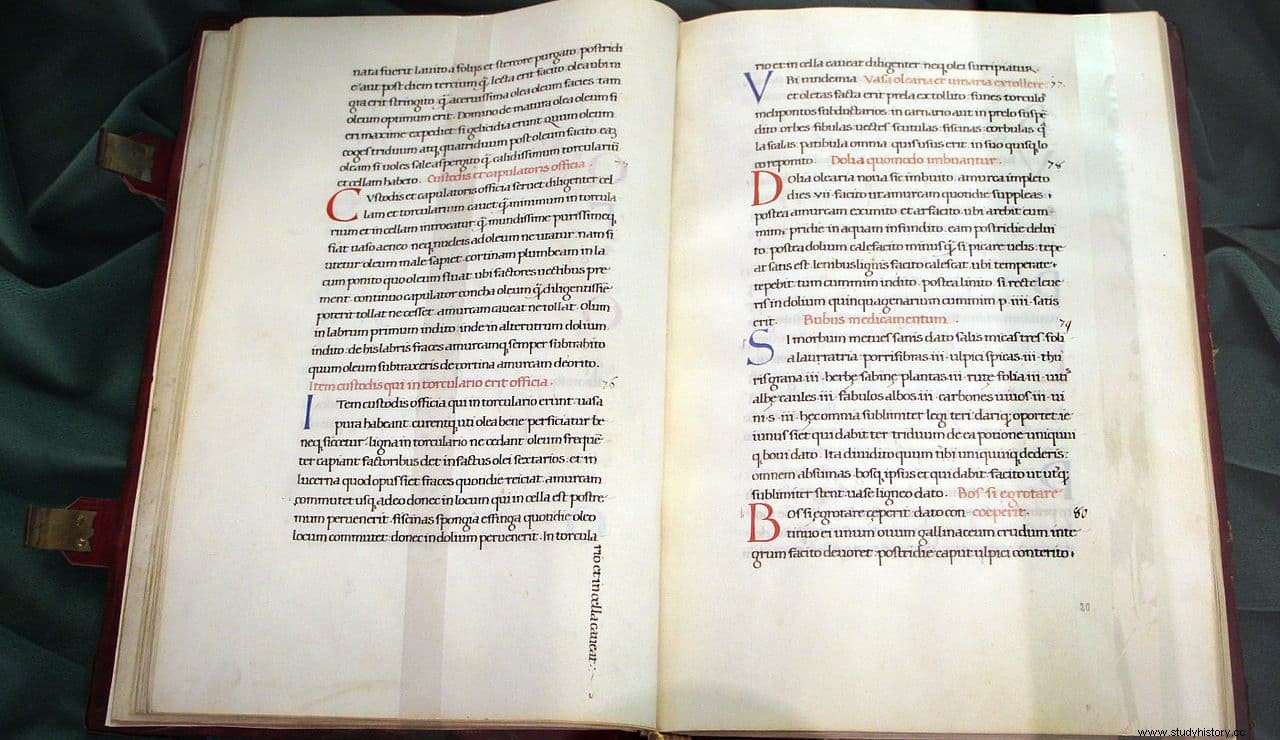 nata fuerit lauito a folijs et stercore purgato · postridi
e aut post diem tercium q̃ lecta erit facito · olea ubi ni
gra erit stringito · q̃ aceruissima olea oleum facies · tam
oleum optimum erit · Domino de matura olea oleum fi
eri maxime expediet · si gelicidia erunt quum oleum
coges triduum atq quatriduum post oleum facito · eaʒ
oleam si uoles sale aspergito q̃ calidissimum torculariũ
et cellam habeto · Custodis et capulatoris officia · 75
CVstodis et capulatoris officia seruet diligenter cel
lam et torcularium caueat q̃ minimum in torcula
rium et in cellam introeatur · q̃ mundissime purissimeq,
fiat uaso aeneo neq, nucleis ad oleum ne utatur · nam si
utetur oleum male sapiet · cortinam plumbeam in la
cum ponito quo oleum fluat · ubi factores uectibus pre
ment · continuo capulator concha oleum q̃ diligentissie
poterit tollat ne cesset · amurcam caueat ne tollat · Olum
in labrum primum indito · inde in alterutrum dolium
indito · de his labris fraces amurcamq, semper subtrahito
quum oleum subtraxeris de cortina amurcam deorito ·
Item custodis qui in torculario erit officia · 76
ITem custodis officia qui in torculario erunt · uasa
pura habeant · curentq, uti olea bene perficiatur be
neq, siccetur · ligna in torculario ne cedant · oleum frequẽ
ter capiant factoribus det in factus olei sextarios · et in
lucerna quod opus siet fraces quotidie reiciat · amurcam
commutet usq, adeo donec in locum qui in cella est postre
mum peruenerit · fiscinas spongia effinga quotidie oleo
locum commutet · donec in dolium peruenerit · In torcula
rio et in cella caueat ·
rio et in cella caueat diligenter neq, olei surripiatur ·
VBi uindemia Vasa olearia et uinaria extollere · 77
et oletas facta erit prela extollito · funes torculo
meliponto subductarios · in carnario aut in prelo suspẽ
dito orbes fibulas uectes scutulas · fiscinas · corbulas q̃
la scalas · patibula omnia quis usus erit · in suo quisq, lo
co reponito · Dolia quomodo imbuantur · 78
DOlia olearia noua sic imbuito · amurca impleto
dies · vii · facito ut amurcam quotidie suppleas ·
postea amurcam eximito et arfacito · ubi arebit cum
mim · pridie in aquam infundito · eam postridie delui
to · postea dolium calefacito minus q̃ si picare uelis · tepe
at satis est · lenibus lignis facito calescat · ubi temperate ·
tepebit · tum cummim indito · postea linito · si recte leue
ris in dolium quinquagenarium cummim p · iiii · satis
erit · Bubus medicamentum · 79
SI morbum metues sanis dato salis micas tres · foli
a laurea tria · porri fibras · iii · ulpici spicas · iii · thu
ris grana · iii · herbe sabine plantas · iii · rute folia · iii · uitis
albe caules · iii · fabulos albos · iii · carbones uiuos · iii · ui
ni · s · iii · hec omnia sublimiter legi teri dariq, oportet · ie
iunus siet qui dabit ter triduum de ea potione uniquui
q, boui dato · Ita diuidito quum ter uniquiq, dederis ·
omnem absumas · bosq, ipsus et qui dabit facito ut utẽq;
sublimiter stent · uase ligneo dato · Bos si egrotare
BOs si egrotare ceperit dato con- coeperit · 80
tinuo ei unum ouum gallinaceum crudum inte
grum facito deuoret · postridie caput ulpici conterito ·
20
www.studyhistory.cc